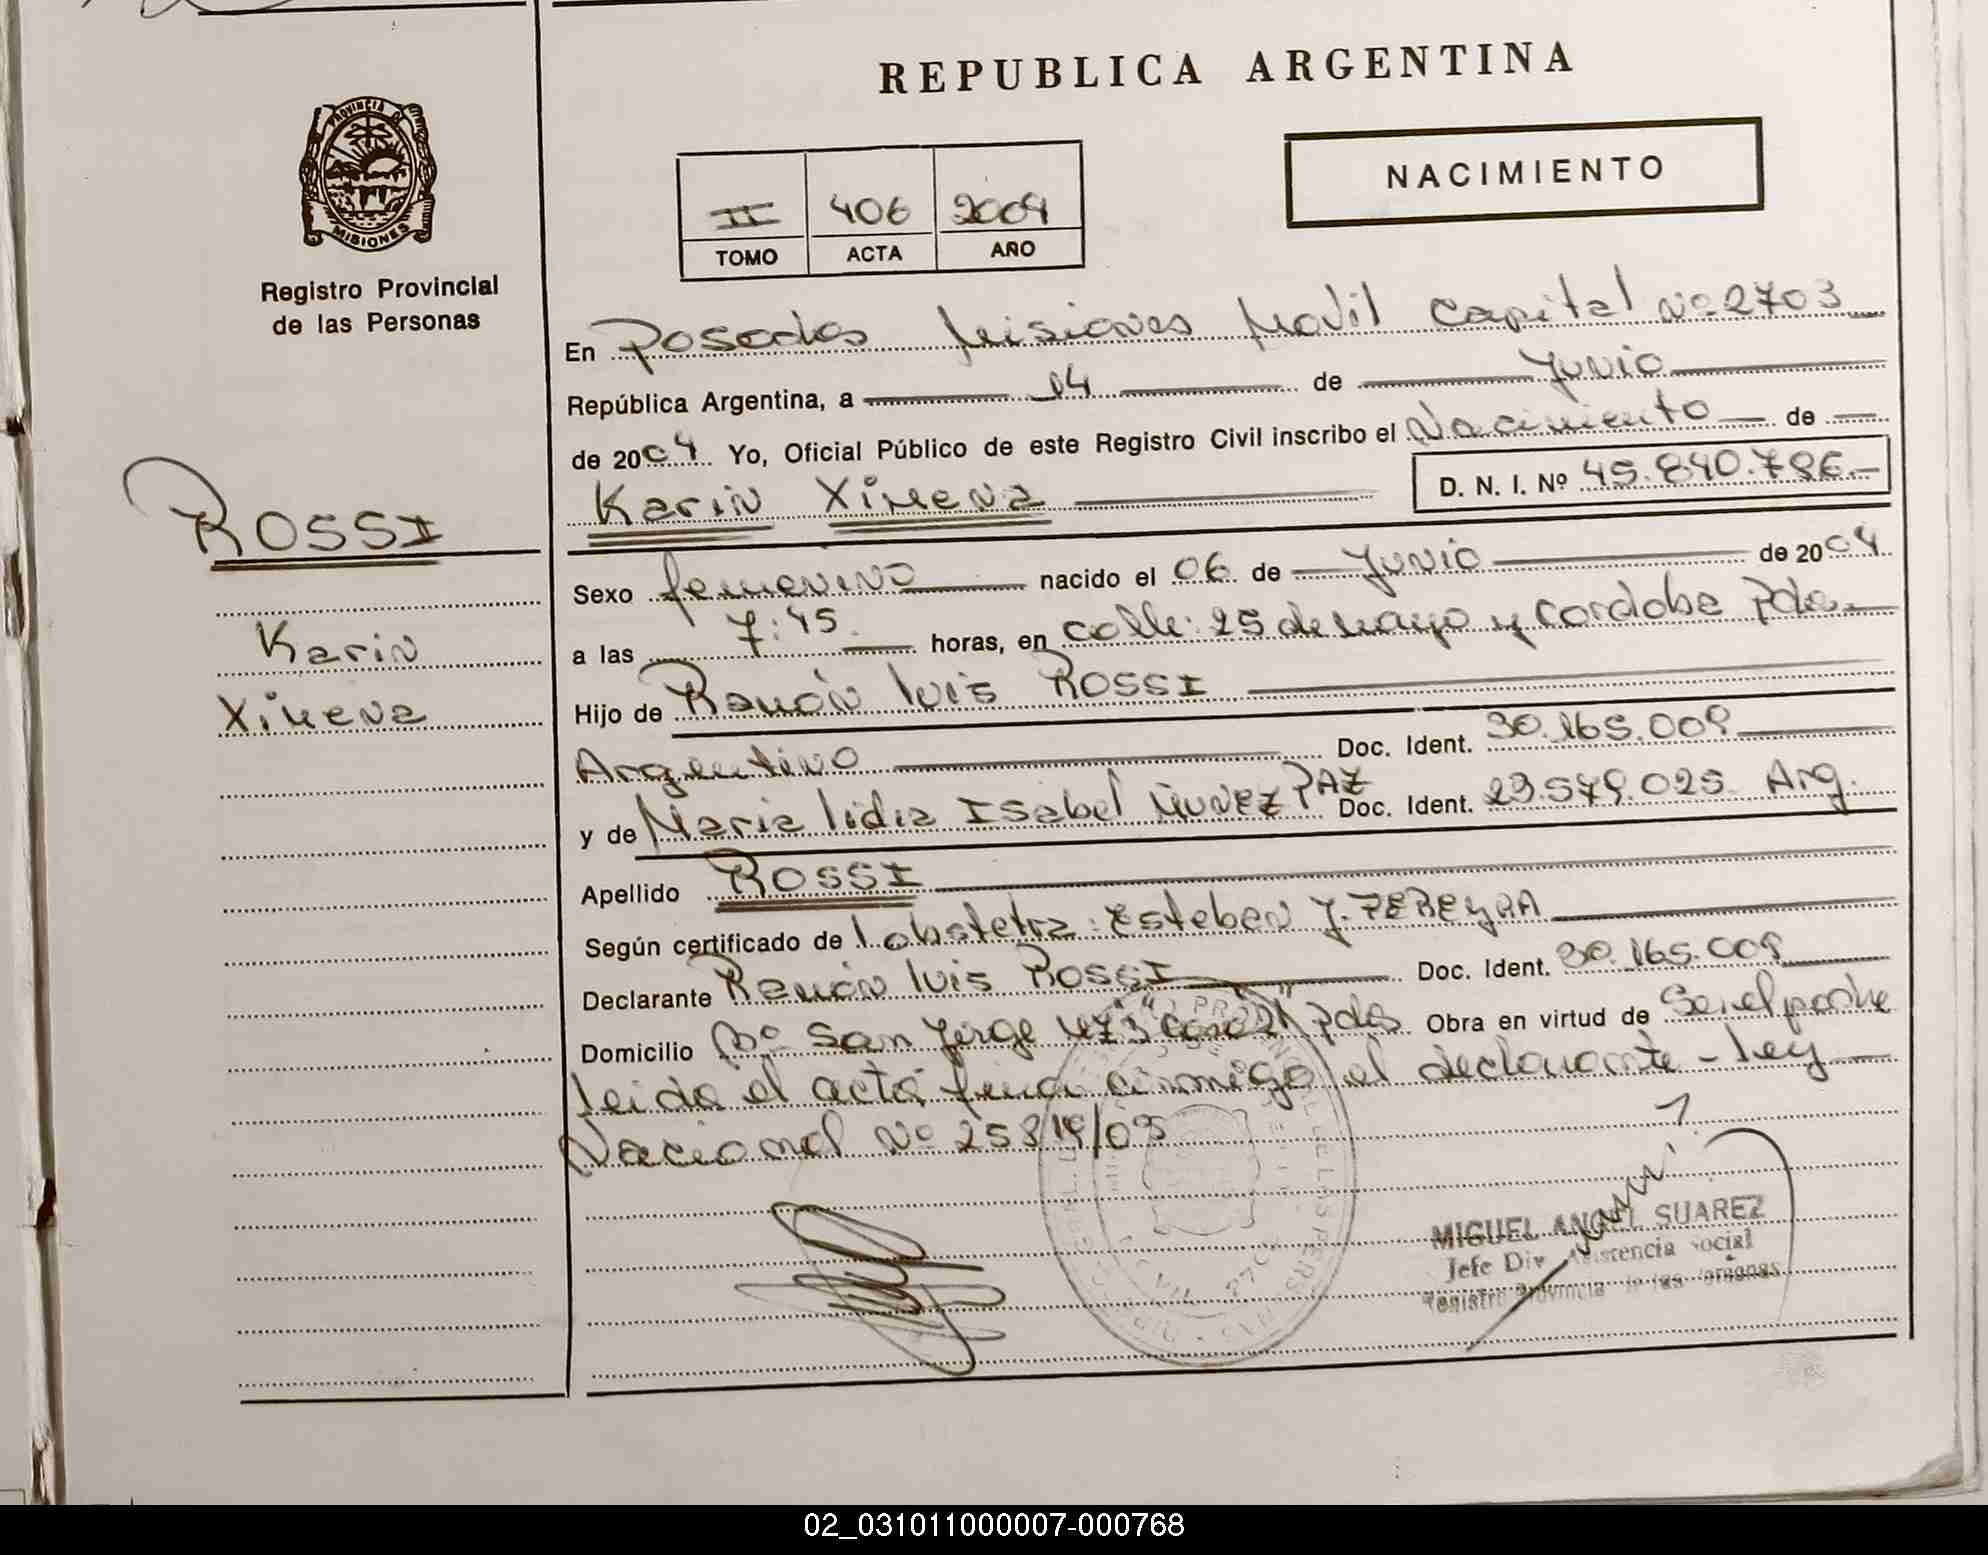 REPUBLICA ARGENTINA
PROVINCIA DE
MISIONES
Registro Provincial
de las Personas
NACIMIENTO
II 406 2004
TOMO ACTA AÑO
En Posadas Misiones Movil Capital Nº 2703
República Argentina, a 14 de Junio
de 2004 Yo, Oficial Público de este Registro Civil inscribo el Nacimiento de
Karin Ximena D. N. I. Nº 45.840.786.-
ROSSI
Karin
Ximena
Sexo femenino nacido el 06 de Junio de 2004
a las 7:45 horas, en calle: 25 de mayo y cordoba Pdas.
Hijo de Ramón luis ROSSI
Argentino Doc. Ident. 30.165.009
y de Maria lidia Isabel Nuñez PAZ Doc. Ident. 23.579.025. Arg.
Apellido ROSSI
Según certificado de l. obstetra: Esteban J. PEREYRA
Declarante Ramón luis ROSSI Doc. Ident. 30.165.009
Domicilio Bº San Jorge 473 Pdas Obra en virtud de Ser el padre
leida el acta firma conmigo el declarante - ley
Nacional Nº
MIGUEL ANGEL SUAREZ
Jefe Div Asistencia Social
Registro Provincial de las Personas
02_031011000007-000768